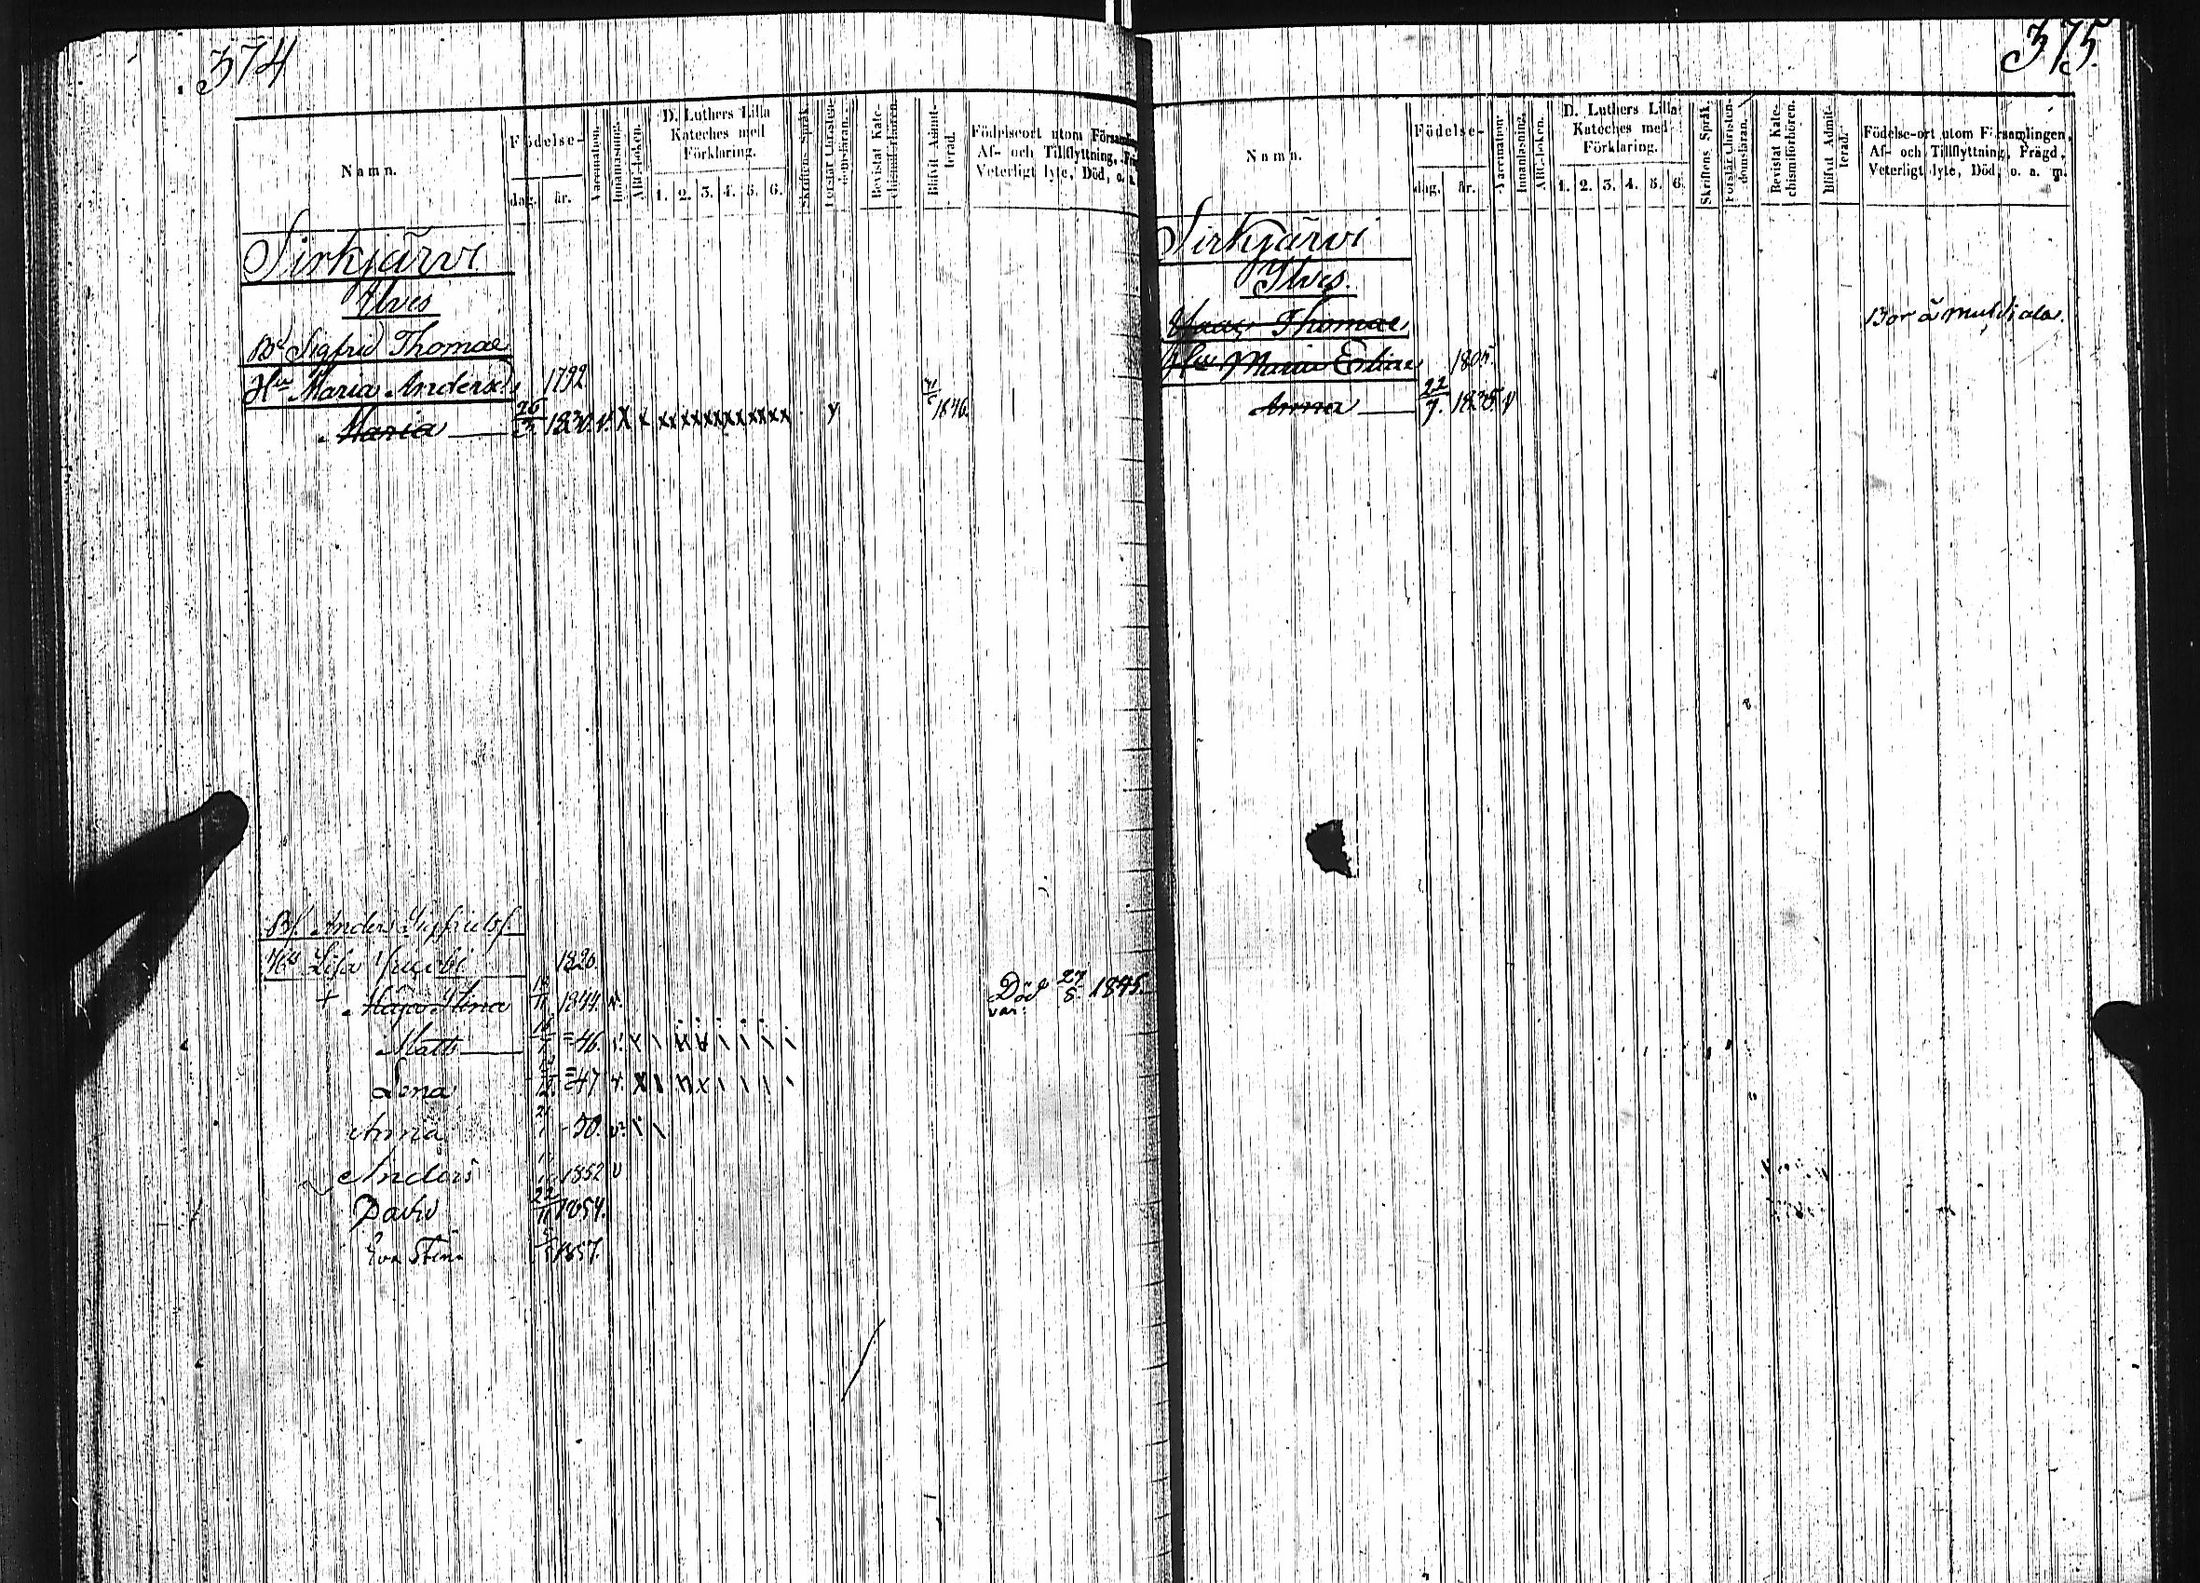 374
Namn.
Födelse-
dag. år.
Vaccination.
Innanläsning.
ABC-boken.
D. Luthers Lilla
Kateches med
Förklaring.
1. 2. 3. 4. 5. 6.
Skriftens Språk.
Förstår Christen-
domsläran.
Bevistat Kate-
chismiförhören.
Blifvit Admit-
terad.
Födelseort utom Försam
Af- och Tillflyttning, Frä
Veterligt lyte, Död, o. a.
Sirkjärvi
Ilves
Bd Sigfrid Thomae
Hu Maria Anders 1792
Maria 26/3 1830. v. X x xx xx xx xx xx xx y 1846.
Bf. Anders Sigfridsf.
Hu Lisa 1820.
+ Maja Stina 1844. v. Död 27/8 1845.
var.
Matts 16/1 =46.
Lena =47 v.
Anna 21/1 -50. v.
Anders 1852 v
David 22/11 1854.
Eva Stina 1857.
375.
Namn.
Födelse-
dag. år.
Vaccination.
Innanläsning.
ABC-boken.
D. Luthers Lilla
Kateches med
Förklaring.
1. 2. 3. 4. 5. 6.
Skriftens Språk.
Förstår Christen-
domsläran.
Bevistat Kate-
chismiförhören.
Blifvit Admit-
terad.
Födelse-ort utom Församlingen,
Af- och Tillflyttning, Frägd,
Veterligt lyte, Död, o. a. m.
Sirkjärvi
Ilves.
Isaac Thomae Bor å
Hu Maria 1805.
Anna 22/7. 1835. v